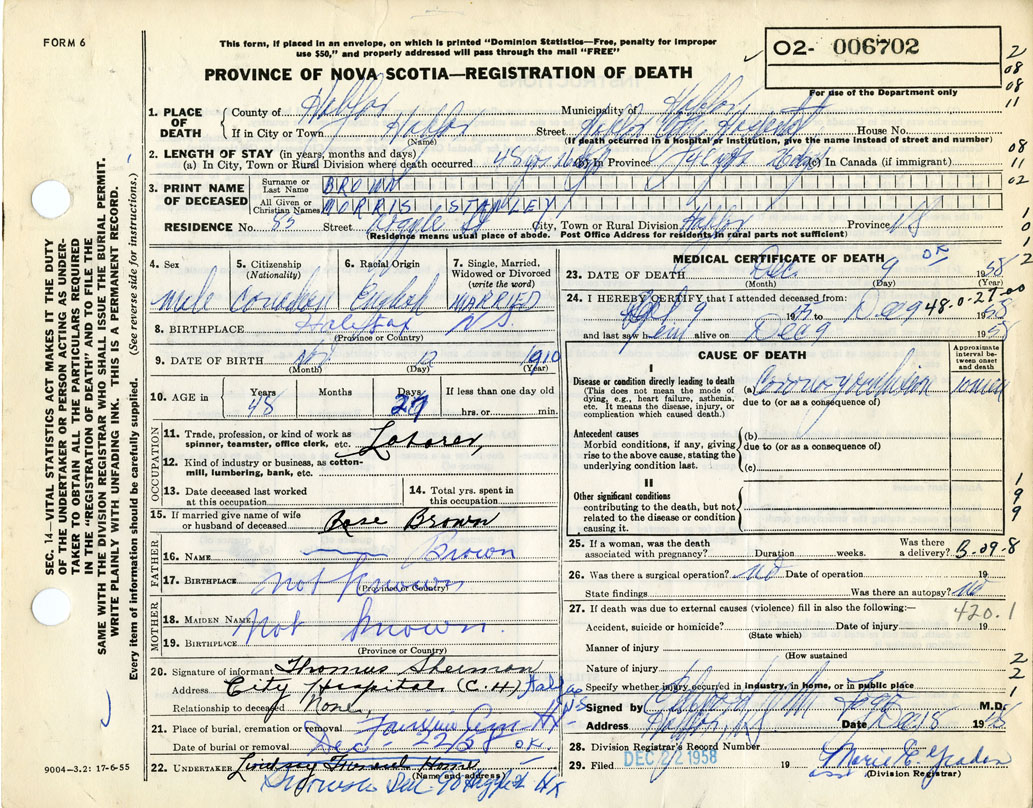 FORM 6
This form, if placed in an envelope, on which is printed "Dominion Statistics—Free, penalty for improper
use $50," and properly addressed will pass through the mail "FREE"
O2- 006702
For use of the Department only
PROVINCE OF NOVA SCOTIA—REGISTRATION OF DEATH
2
08
08
11
1. PLACE OF DEATH
County of Halifax Municipality of Halifax
If in City or Town Halifax Street Halifax Hospital House No.
(Name) (If death occurred in a hospital or institution, give the name instead of street and number)
2. LENGTH OF STAY (in years, months and days)
(a) In City, Town or Rural Division where death occurred 48 yrs (b) In Province (c) In Canada (if immigrant)
08
11
3. PRINT NAME OF DECEASED
Surname or Last Name BROWN
02
All Given or Christian Names MORRIS STANLEY
RESIDENCE No. 55 Street Argyle St City, Town or Rural Division Halifax Province NS
(Residence means usual place of abode. Post Office Address for residents in rural parts not sufficient)
1
0
1
2
SEC. 14—VITAL STATISTICS ACT MAKES IT THE DUTY
OF THE UNDERTAKER OR PERSON ACTING AS UNDER-
TAKER TO OBTAIN ALL THE PARTICULARS REQUIRED
IN THE "REGISTRATION OF DEATH" AND TO FILE THE
SAME WITH THE DIVISION REGISTRAR WHO SHALL ISSUE THE BURIAL PERMIT.
WRITE PLAINLY WITH UNFADING INK. THIS IS A PERMANENT RECORD.
Every item of information should be carefully supplied. (See reverse side for instructions.)
4. Sex
male
5. Citizenship
(Nationality)
Canadian
6. Racial Origin
English
7. Single, Married,
Widowed or Divorced
(write the word)
MARRIED
8. BIRTHPLACE Halifax N.S.
(Province or Country)
9. DATE OF BIRTH Nov 12 1910
(Month) (Day) (Year)
10. AGE in
Years Months Days If less than one day old
48 27 hrs. or min.
OCCUPATION
11. Trade, profession, or kind of work as
spinner, teamster, office clerk, etc. Laborer
12. Kind of industry or business, as cotton-
mill, lumbering, bank, etc.
13. Date deceased last worked
at this occupation
14. Total yrs. spent in
this occupation
15. If married give name of wife
or husband of deceased Rose Brown
FATHER
16. NAME Brown
17. BIRTHPLACE not known
(Province or Country)
MOTHER
18. MAIDEN NAME Not known.
19. BIRTHPLACE
(Province or Country)
20. Signature of informant Thomas Sherman
Address City Hospital (C.H) Halifax N.S
Relationship to deceased None.
21. Place of burial, cremation or removal Fairview
Date of burial or removal Dec OK.
22. UNDERTAKER Lindsay Funeral Home
(Name and address)
9004—3.2: 17-6-55
MEDICAL CERTIFICATE OF DEATH OK
23. DATE OF DEATH Dec. 9 1958
(Month) (Day) (Year)
24. I HEREBY CERTIFY that I attended deceased from:
9 to Dec 9 1958
48-0-27-00
and last saw him alive on Dec 9 1958
CAUSE OF DEATH
Approximate
interval be-
tween onset
and death
I
Disease or condition directly leading to death
(This does not mean the mode of
dying, e.g., heart failure, asthenia,
etc. It means the disease, injury, or
complication which caused death.)
(a)
due to (or as a consequence of)
Antecedent causes
Morbid conditions, if any, giving
rise to the above cause, stating the
underlying condition last.
(b)
due to (or as a consequence of)
(c)
II
Other significant conditions
contributing to the death, but not
related to the disease or condition
causing it.
1
9
9
25. If a woman, was the death
associated with pregnancy? Duration weeks. Was there
a delivery? B-09-8
26. Was there a surgical operation? no Date of operation 19
State findings Was there an autopsy? no
27. If death was due to external causes (violence) fill in also the following:—
420.1
Accident, suicide or homicide? Date of injury 19
(State which)
Manner of injury
(How sustained
Nature of injury
2
2
Specify whether injury occurred in industry, in home, or in public place
1
Signed by M.D.
Address Halifax, NS Date Dec 18 1958
28. Division Registrar's Record Number
DEC 22 1958
29. Filed 19 Marie E.
(Division Registrar)